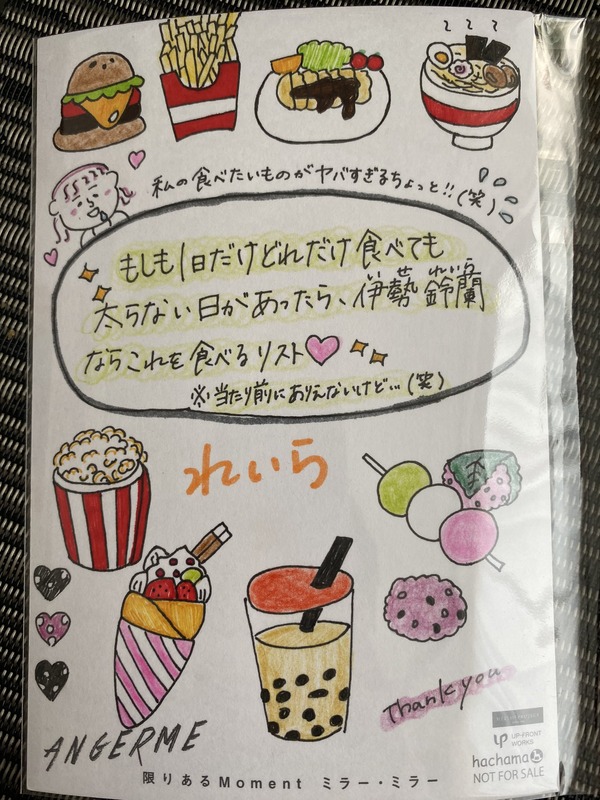 私の食べたいものがヤバすぎるちょっと!!(笑)
もしも1日だけどれだけ食べても
太らない日があったら、伊勢鈴蘭
いせ れいら
ならこれを食べるリスト♡
※当たり前にありえないけど…(笑)
れいら
Thank you
ANGERME
UP-FRONT WORKS
hachama
NOT FOR SALE
限りあるMoment ミラー・ミラー